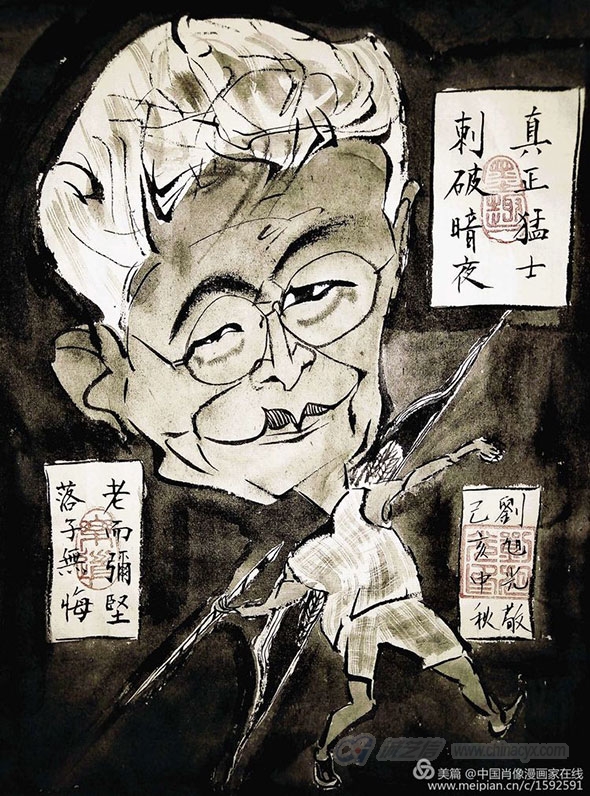 真正猛士
刺破暗夜
老而彌堅
落子無悔
劉旭光敬
己亥中秋
www.chinacyx.com
美篇 @中国肖像漫画家在线
www.meipian.cn/c/1592591